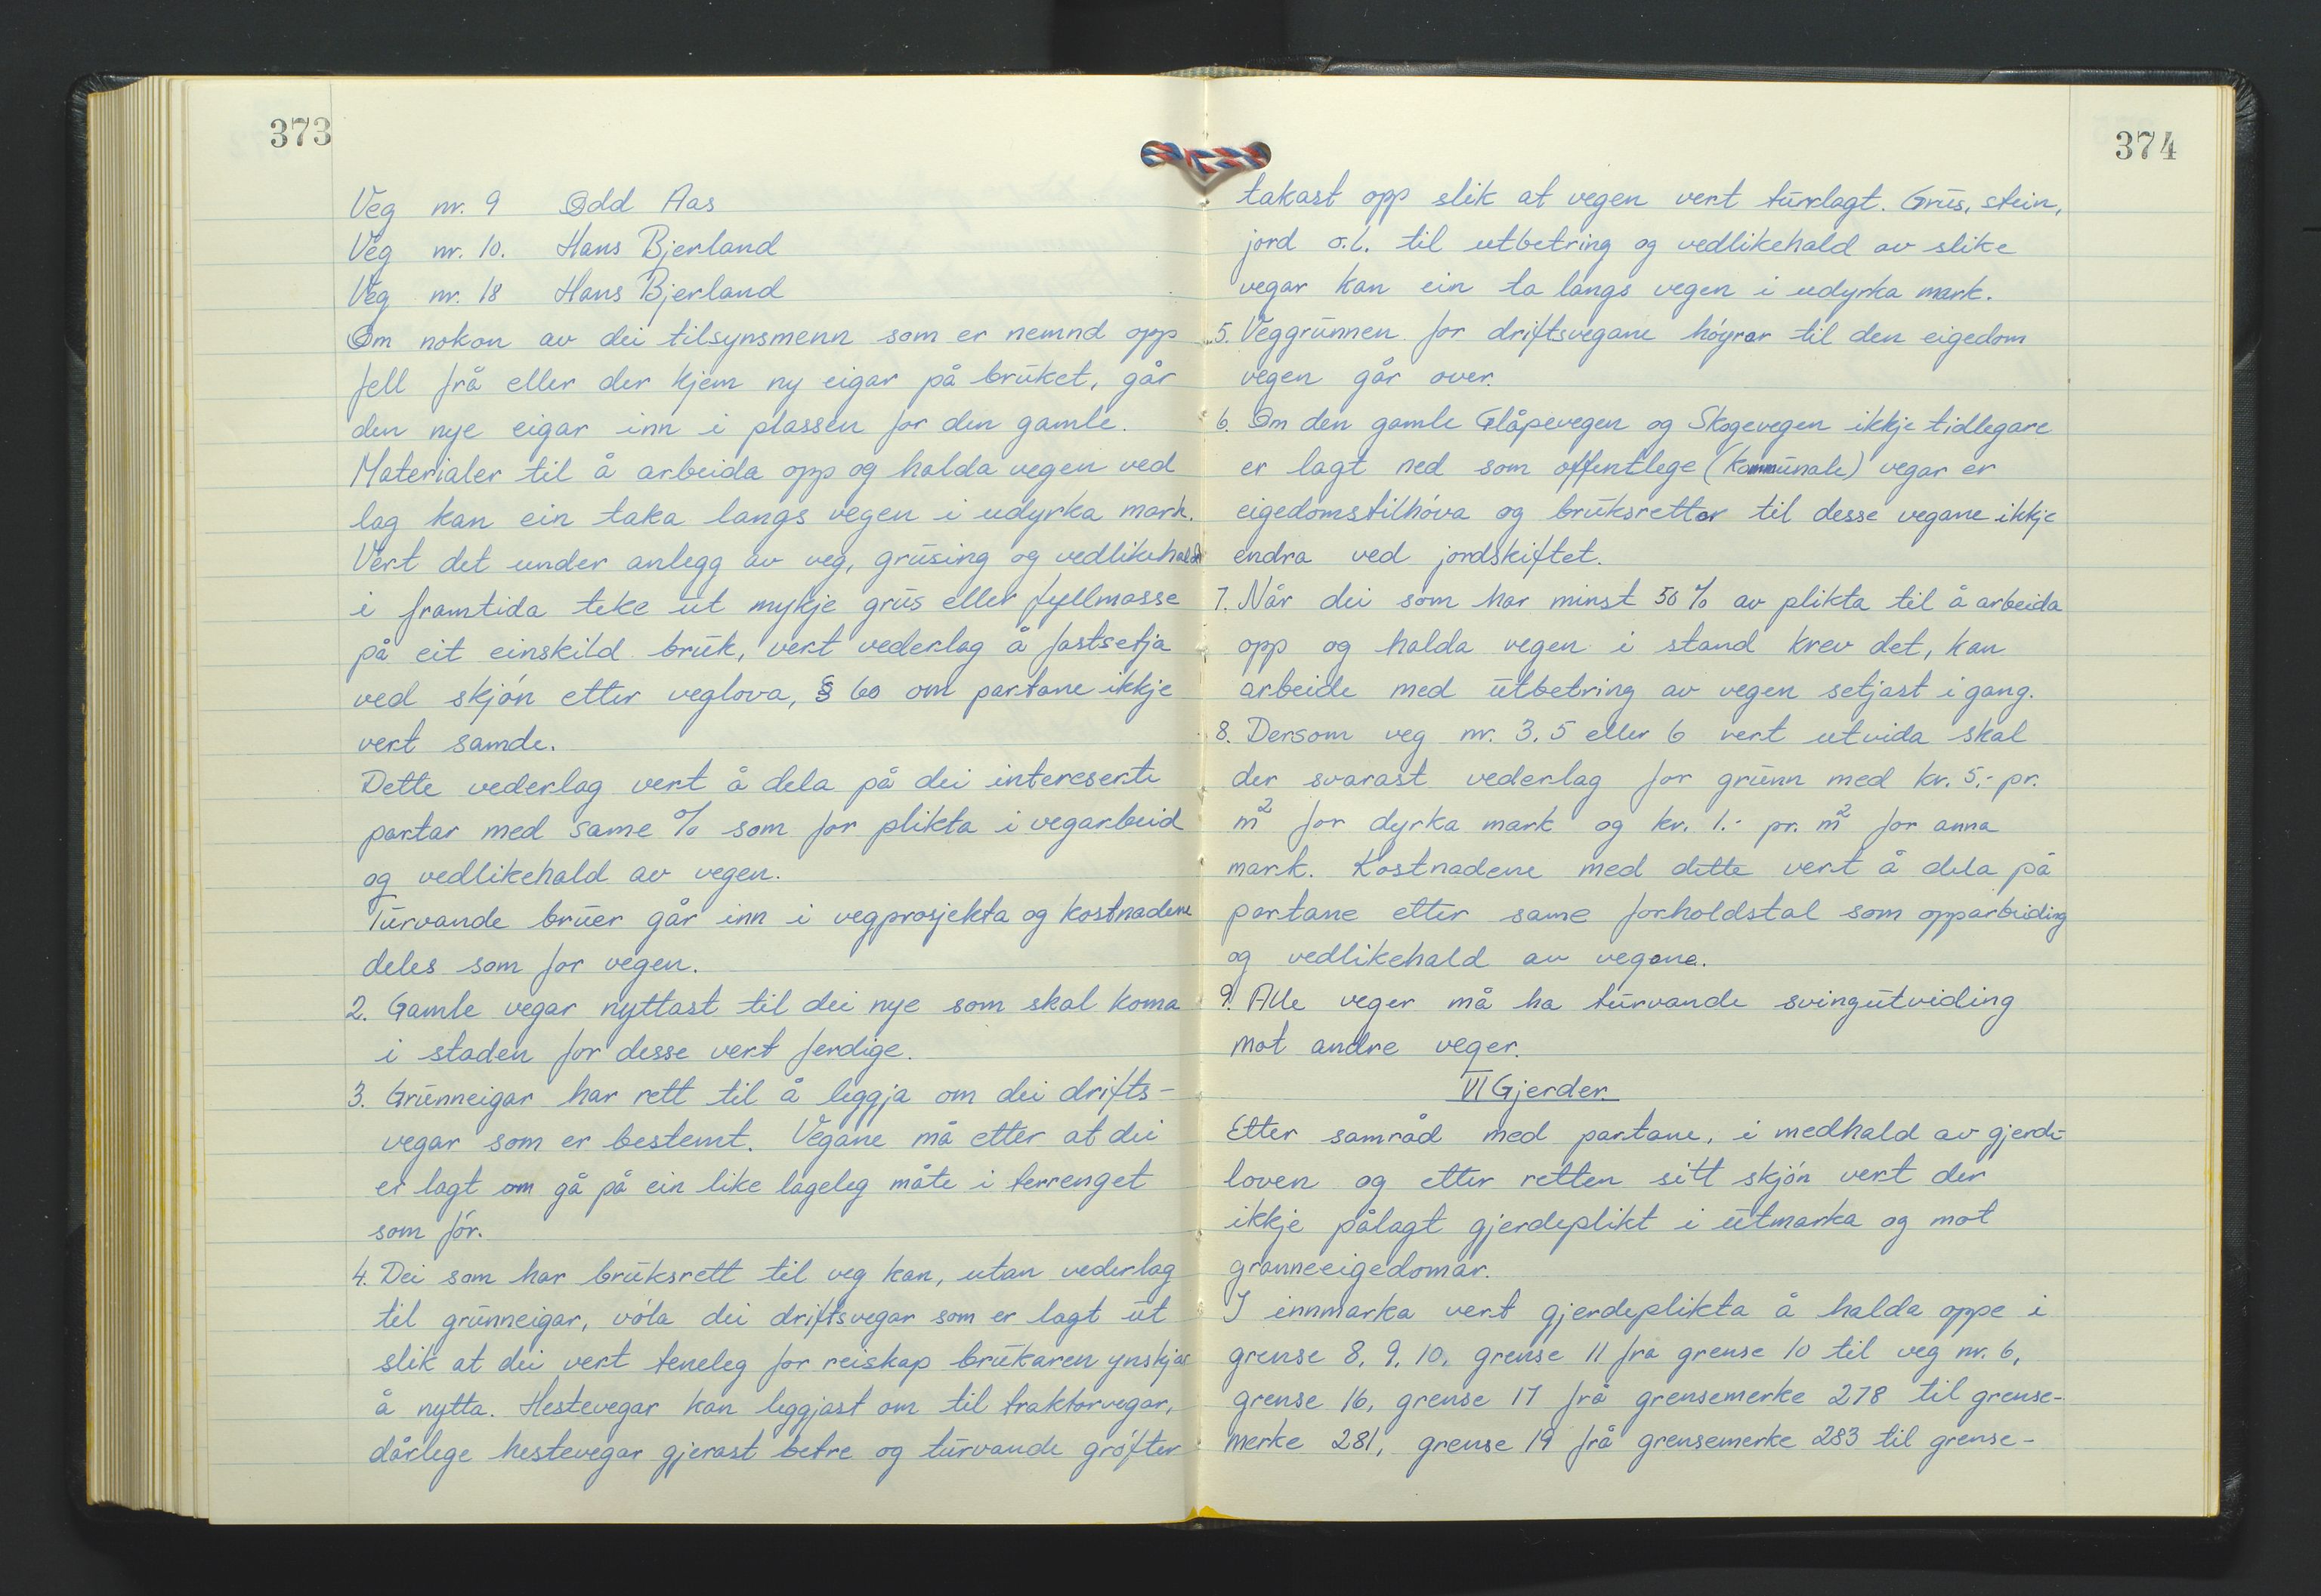 373
Veg nr. 9 Odd Aas
Veg nr. 10. Hans Bjerland
Veg nr. 18 Hans Bjerland
Om nokon av dei tilsynsmenn som er nemnd opp
fell frå eller der kjem ny eigar på bruket, går
den nye eigar inn i plassen for den gamle.
Materialer til å arbeida opp og halda vegen ved
lag kan ein taka langs vegen i udyrka mark.
Vert det under anlegg av veg, grusing og vedlikehald
i framtida teke ut mykje grus eller fyllmasse
på eit einskild bruk, vert vederlag å fastsetja
ved skjøn etter veglova, § 60 om partane ikkje
vert samde.
Dette vederlag vert å dela på dei intereserte
partar med same % som for plikta i vegarbeid
og vedlikehald av vegen.
Turvande bruer går inn i vegprosjekta og kostnadene
deles som for vegen.
2. Gamle vegar nyttast til dei nye som skal koma
i staden for desse vert ferdige.
3. Grunneigar har rett til å leggja om dei drifts-
vegar som er bestemt. Vegane må etter at dei
er lagt om gå på ein like lageleg måte i terrenget
som før.
4. Dei som har bruksrett til veg kan, utan vederlag
til grunneigar, vøla dei driftsvegar som er lagt ut
slik at dei vert teneleg for reiskap brukaren ynskjer
å nytta. Hestevegar kan leggjast om til traktorvegar,
dårlege hestevegar gjerast betre og turvande grøfter
374
takast opp slik at vegen vert turrlagt. Grus, stein,
jord o.l. til utbetring og vedlikehald av slike
vegar kan ein ta langs vegen i udyrka mark.
5. Veggrunnen for driftsvegane høyrer til den eigedom
vegen går over.
6. Om den gamle Glåpevegen og Skogevegen ikkje tidlegare
er lagt ned som offentlege (kommunale) vegar er
eigedomstilhøva og bruksretter til desse vegane ikkje
endra ved jordskiftet.
7. Når dei som har minst 50 % av plikta til å arbeida
opp og halda vegen i stand krev det, kan
arbeide med utbetring av vegen setjast i gang.
8. Dersom veg nr. 3, 5 eller 6 vert utvida skal
der svarast vederlag for grunn med kr. 5,- pr.
m² for dyrka mark og kr. 1.- pr. m² for anna
mark. Kostnadene med dette vert å dela på
partane etter same forholdstal som opparbeiding
og vedlikehald av vegane.
9. Alle veger må ha turvande svingutviding
mot andre veger.
VI Gjerder.
Etter samråd med partane, i medhald av gjerde-
loven og etter retten sitt skjøn vert der
ikkje pålagt gjerdeplikt i utmarka og mot
granneeigedomar.
I innmarka vert gjerdeplikta å halda oppe i
grense 8, 9, 10, grense 11 fra grense 10 til veg nr. 6,
grense 16, grense 17 frå grensemerke 278 til grense-
merke 281, grense 19 frå grensemerke 283 til grense-